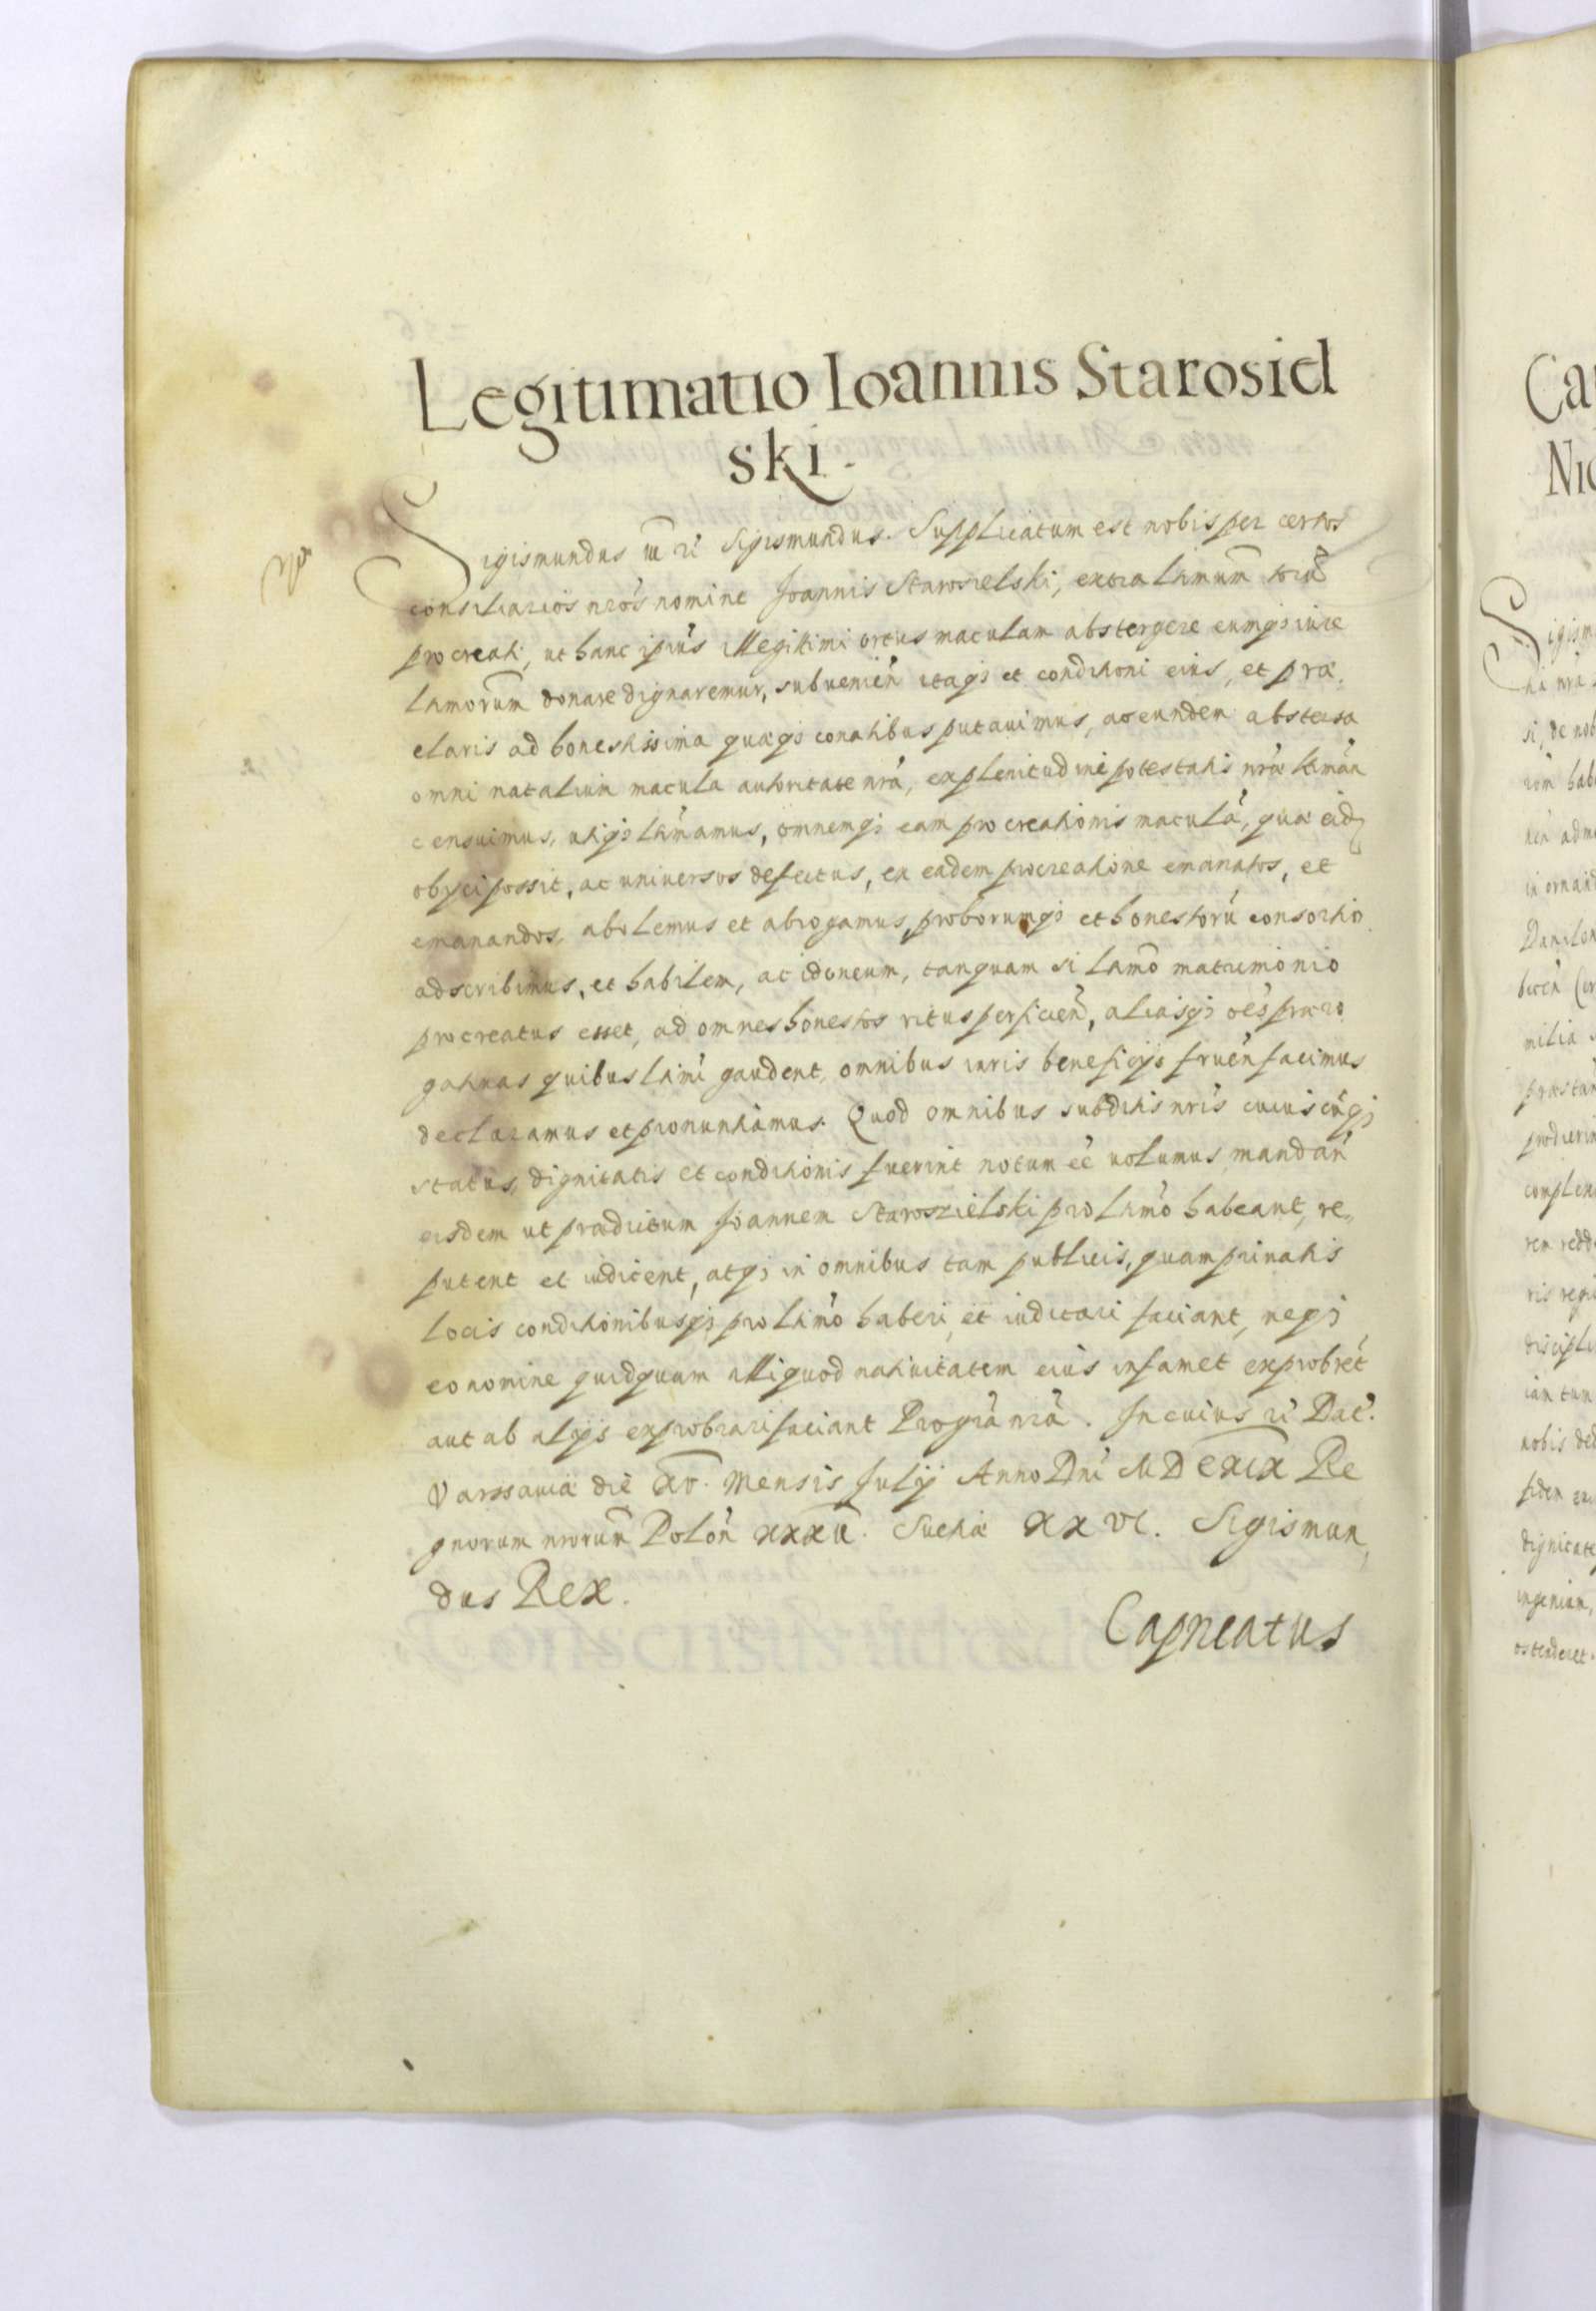 Legitimatio Ioannis Starosiel
ski.
Sigismundus iii ri Sigismundus. Supplicatum est nobis per certos
consiliarios nros nomine Joannis Starosielski, extra limum torũ
procreati, ut hanc ipius illegitimi ortus maculam abstergere eumq; iure
limorum donare dignaremur, subvenien itaq; et conditioni eius, et præ,
claris ad honestissima quæq; conatibus putavimus, ac eundem abstersa
omni natalium macula autoritate nrã, ex plenitudine potestatis nræ ltimãn
censuimus, utiq; ltimamus, omnemq; eam procreationis maculã, quæ eid
obijci possit, ac universos defectus, ex eadem procreatione emanatos, et
emanandos, abolemus et abrogamus, proborumq; et honestorũ consortio
adscribimus, et habilem, ac idoneum, tanquam si lamo matrimonio
procreatus esset, ad omnes honestos ritus perficien, aliasq; oes præro
gativas quibus limi gaudent, omnibus iuris beneficijs fruen facimus
declaramus et pronuntiamus. Quod omnibus subditis nris cuiuscũq;
status, dignitatis et conditionis fuerint notum eẽ volumus, mandan
eisdem ut prædictum Joannem Staroszielski pro limo habeant, re,
putent et iudicent, atq; in omnibus tam publicis, quam privatis
locis conditionibusq; pro limo haberi, et iudicari faciant, neq;
eo nomine quidquam illi quod nativitatem eius infamet exprobrẽt
aut ab alijs exprobrari faciant Pro grã nrã. In cuius ri Dat.
Varssaviæ die XV. Mensis Julij Anno Dni MDCXIX Re
gnorum nrorum Polon XXXII. Sueciæ XXVI. Sigismun,
dus Rex.